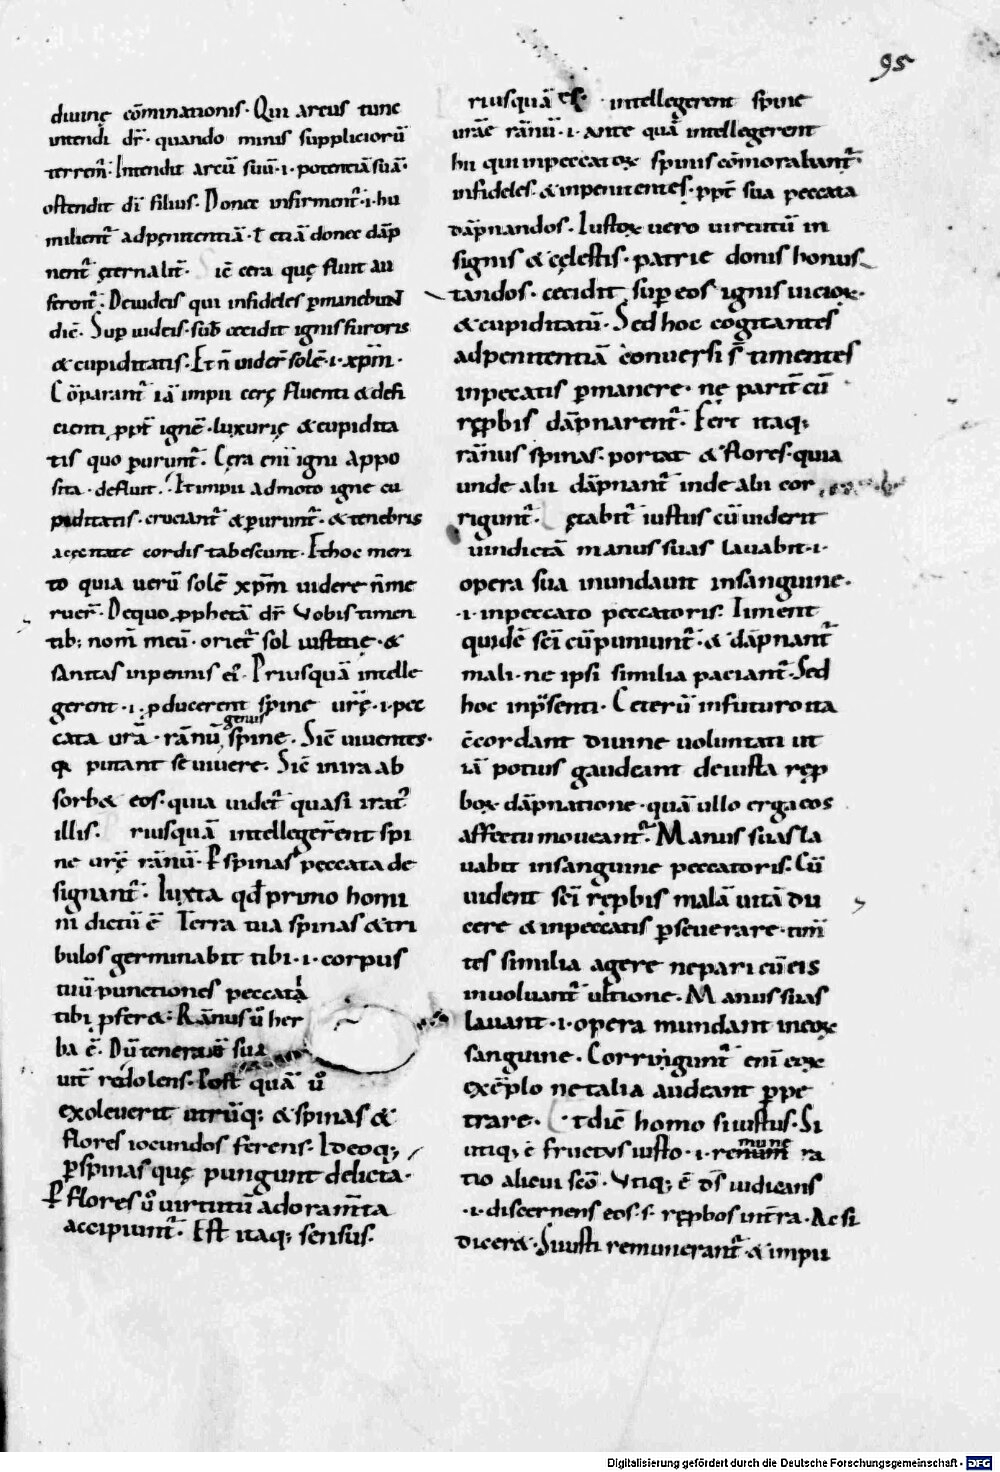 95
diuinę cōminationis· Qui arcus tunc
intendi dr̄· quando minis suppliciorū
terrem̄· Intendit arcū suū ·i· potentiā suā·
ostendit dī filius· Donec infirment̄ ·i· hu
milient̄ ad pęnitentiā· ł etiā donec dāp
nent̄ ęternalit̄· Sic̄ cera quę fluit au
ferent̄· De uideis qui infideles p̄manebuNT
dic̄· Sup̄ uideis· sub̄ cecidit ignis furoris
& cupiditatis· Et n̄ uider̄ solē ·i· xp̄m·
Cōparant̄ iā impii cerę fluenti & defi
cienti ppt̄ ignē· luxurię & cupidita
tis quo p̄urunt̄· Cęra eni igni appo
sita· defluit· Et impii admoto igne cu
piditatis· cruciant̄ & p̄urunt̄· & tenebris
accęnate cordis tabescunt· Et hoc meri
to quia uerū solē xp̄m uidere n̄ me
ruer̄· De quo pphetā dr̄ Vobis timen
tib; nom̄ meū· oriet̄ sol iustitię &
sanitas in pennis ei᾽· Priusquā intelle
gerent ·i· pducerent spine urę̄ ·i· pec
cata urā· rānū genuis spine· Sic̄ uiuentes·
q̄ putant se uiuere· Sic̄ in ira ab
sorb& eos· quia uidet̄ quasi irat᾽
illis· Priusquā intelleger̄ent spi
ne urę̄ rānū· P̄ spinas peccata de
signant̄· Iuxta qd̄ primo homi
ni dictū ē Terra tua spinas & tri
bulos germinabit tibi ·i· corpus
tuū punctiones peccatā
tibi p̄fer&· Rānus ū her
ba ē· Dū tenera sua
uit̄ redolens· Post quā ū
exoleuerit utrūq; & spinas &
flores iocundos ferens· Ideoq;
p̄ spinas quę pungunt delicta·
P̄ flores ū uirtutū adoram̄ta
accipiunt̄· Est itaq; sensus·
Priusquā intellegerent spine
urāe rānū ·i· ante quā intellegerent
hii qui in peccatox spinis cōmorabant̄·
infideles & inpenitentes· ppt̄ sua peccata
dāpnandos· Iustox uero uirtutū in
signis & cęlestis· patrie donis honus
tandos· cecidit sup̄ eos ignis uiciox·
& cupiditatū· Sed hoc cogitantes
ad penitentiā conuersi s̄ timentes
in pecatis p̄manere· nę parit̄ cū
rępbis dāpnarent̄· Fert itaq;
rānus spinas· portat & flores· quia
unde alii dāpnant̄ inde alii cor
rigunt̄· Lętabit̄ iustus cū uiderit
uindictā manus suas lauabit ·i·
opera sua inundauit in sanguine·
·i· in peccato peccatoris· Timent
quidē sc̄i cū puniunt̄· & dāpnant̄
mali· ne ipsi similia paciant̄· Sed
hoc in p̄senti· Ceterū in futuro ita
c̄cordant diuine uoluntati ut
iā potius gaudeant de iusta ręp
box dāpnatione· quā ullo erga eos
affectu moueant̄· Manus suas la
uabit in sanguine peccatoris· Cū
uident sc̄i rępbis malā uitā du
cere & in peccatis p̄seuerare· tim̄
tes similia agere ne pari cū eis
inuoluant̄ ultione· Manus suas
lauant ·i· opera mundant in eox
sanguine· Corrigunt̄ eni eox
exēplo ne talia audeant p̄pe
trare· Et dic̄ homo si iustus· Si
utiq; ē fructus iusto ·i· remune ra
tio alicui sc̄o· Vtiq; ē ds̄ iudicans
·i· discernens eos· s· rępbos in t̄ra· Ac si
dicer&· Si iusti remunerant̄ & impii
Digitalisierung gefördert durch die Deutsche Forschungsgemeinschaft - DFG